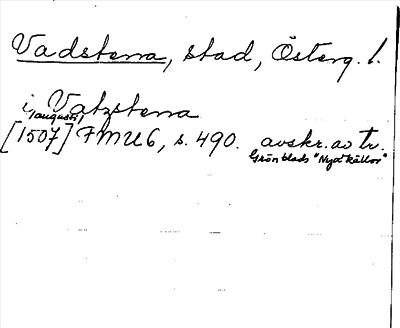 Vadstena, stad, Österg. l.
i Vatzstena
[1507] FMU 6, s. 490. avskr. av tr.
(augusti)
Grönblads "Nya källor"